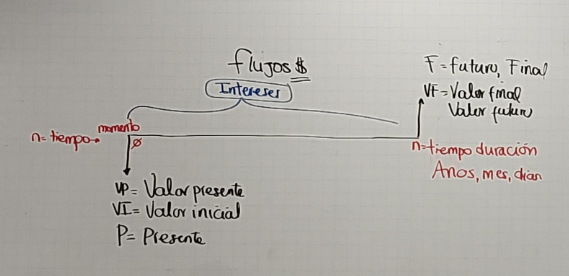 flujos $
Intereses
F = futuro, Final
VF = Valor final
Valor futuro
n = tiempo
momento
Ø
n = tiempo duración
Años, mes, dias
VP = Valor presente
VI = Valor inicial
P = Presente